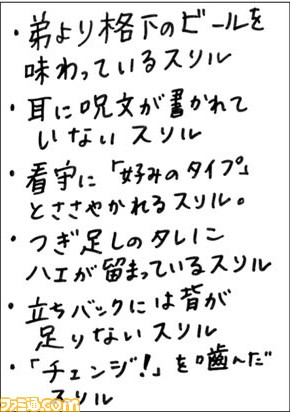 ・弟より格下のビールを
味わっているスリル
・耳に呪文が書かれて
いないスリル
・看守に「好みのタイプ」
とささやかれるスリル。
・つぎ足しのタレに
ハエが留まっているスリル
・立ちバックには背が
足りないスリル
・「チェンジ!」を噛んだ
スリル
ファミ通.com